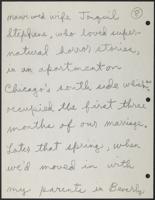 now wed wife Jorquil
Stephens, who loved super-
natural horror stories,
in an apartment on
Chicago's south side which we
occupied the first three
months of our marriage.
Later that spring, when
we'd moved in with
my parents in Beverly